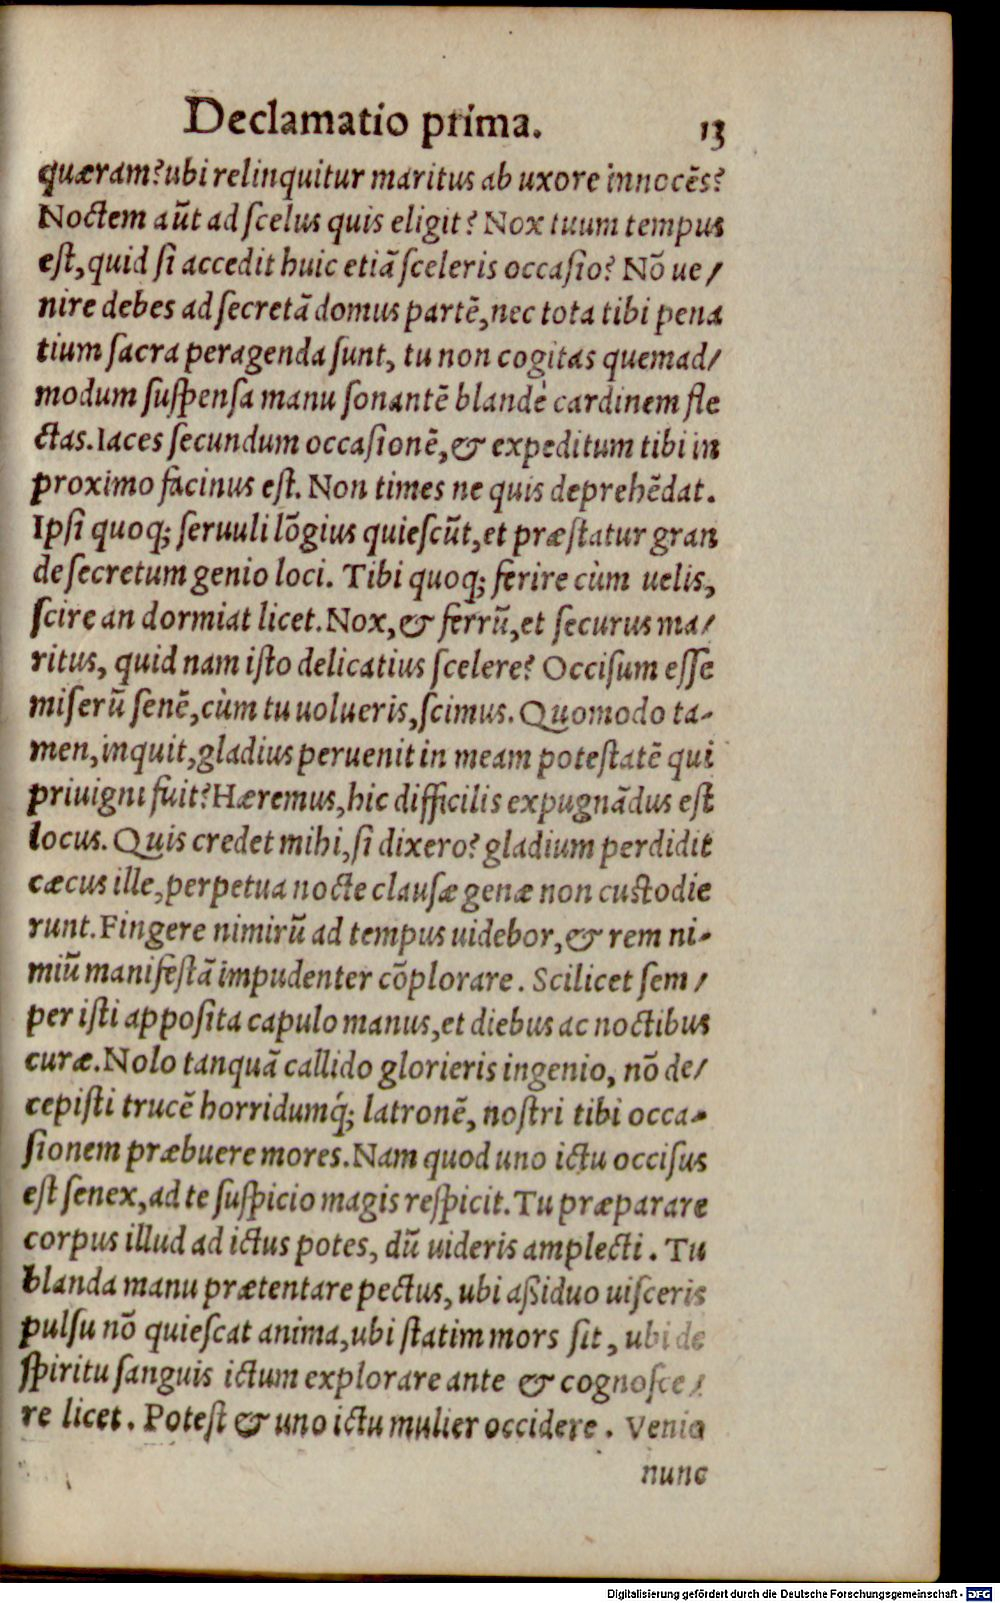 Declamatio prima. 13
quæram? ubi relinquitur maritus ab uxore innocẽs?
Noctem aũt ad ſcelus quis eligit? Nox tuum tempus
eſt, quid ſi accedit huic etiã ſceleris occaſio? Nõ ue/
nire debes ad ſecretã domus partẽ, nec tota tibi pena
tium ſacra peragenda ſunt, tu non cogitas quemad/
modum ſuſpenſa manu ſonantẽ blandè cardinem fle
ctas. Iaces ſecundum occaſionẽ, & expeditum tibi in
proximo facinus eſt. Non times ne quis deprehẽdat.
Ipſi quoq; ſeruuli lõgius quieſcũt, et præſtatur gran
de ſecretum genio loci. Tibi quoq; ferire cùm uelis,
ſcire an dormiat licet. Nox, & ferrũ, et ſecurus ma/
ritus, quid nam iſto delicatius ſcelere? Occiſum eſſe
miſerũ ſenẽ, cùm tu uolueris, ſcimus. Quomodo ta-
men, inquit, gladius peruenit in meam poteſtatẽ qui
priuigni fuit? Hæremus, hic difficilis expugnãdus eſt
locus. Quis credet mihi, ſi dixero? gladium perdidit
cæcus ille, perpetua nocte clauſæ genæ non cuſtodie
runt. Fingere nimirũ ad tempus uidebor, & rem ni-
miũ manifeſtã impudenter cõplorare. Scilicet ſem/
per iſti appoſita capulo manus, et diebus ac noctibus
curæ. Nolo tanquã callido glorieris ingenio, nõ de/
cepiſti trucẽ horridumq́; latronẽ, noſtri tibi occa-
ſionem præbuere mores. Nam quod uno ictu occiſus
eſt ſenex, ad te ſuſpicio magis reſpicit. Tu præparare
corpus illud ad ictus potes, dũ uideris amplecti. Tu
blanda manu prætentare pectus, ubi aßiduo uiſceris
pulſu nõ quieſcat anima, ubi ſtatim mors ſit, ubi de
ſpiritu ſanguis ictum explorare ante & cognoſce/
re licet. Poteſt & uno ictu mulier occidere. Venio
nunc
Digitalisierung gefördert durch die Deutsche Forschungsgemeinschaft - DFG